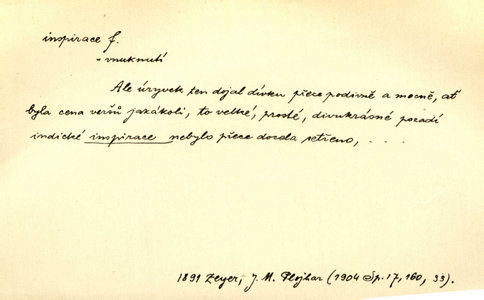 inspirace f.
= vnuknutí
Ale úryvek ten dojal dívku přece podivně a mocně, ať
byla cena veršů jakákoli, to velké, prosté, divukrásné pozadí
indické inspirace nebylo přece docela setřeno, . . . .
1891 Zeyer, J. M. Plojhar (1904 Sp. 17, 160, 33).